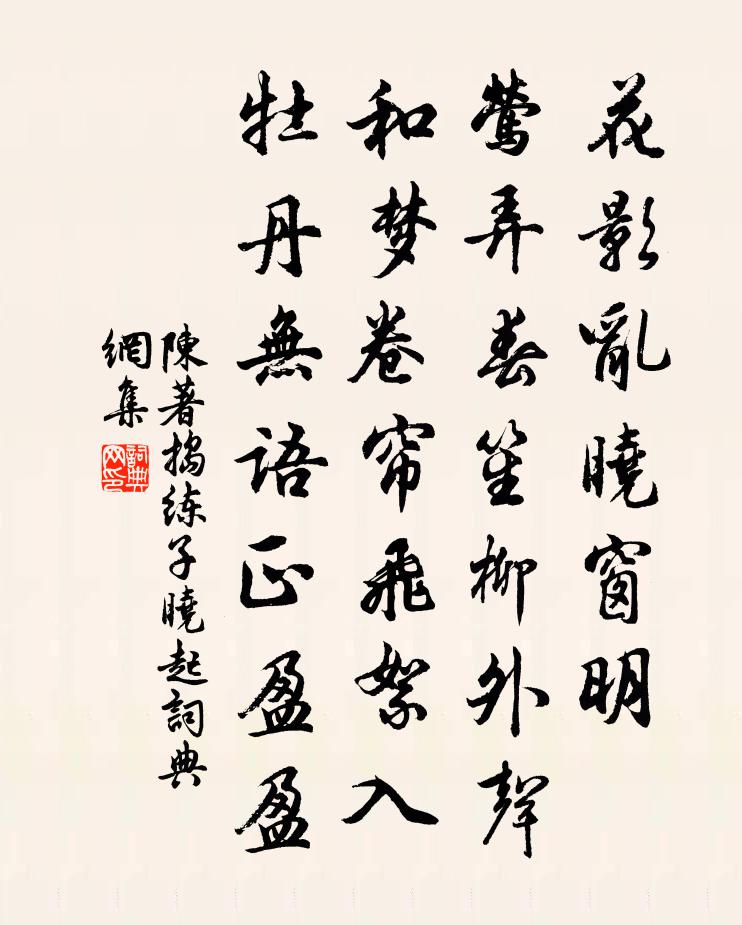 花影亂曉窗明
鶯弄春笙柳外聲
和梦卷帘飛絮入
牡丹無語正盈盈
陳著搗练子曉起詞典
網集
詞典
网印